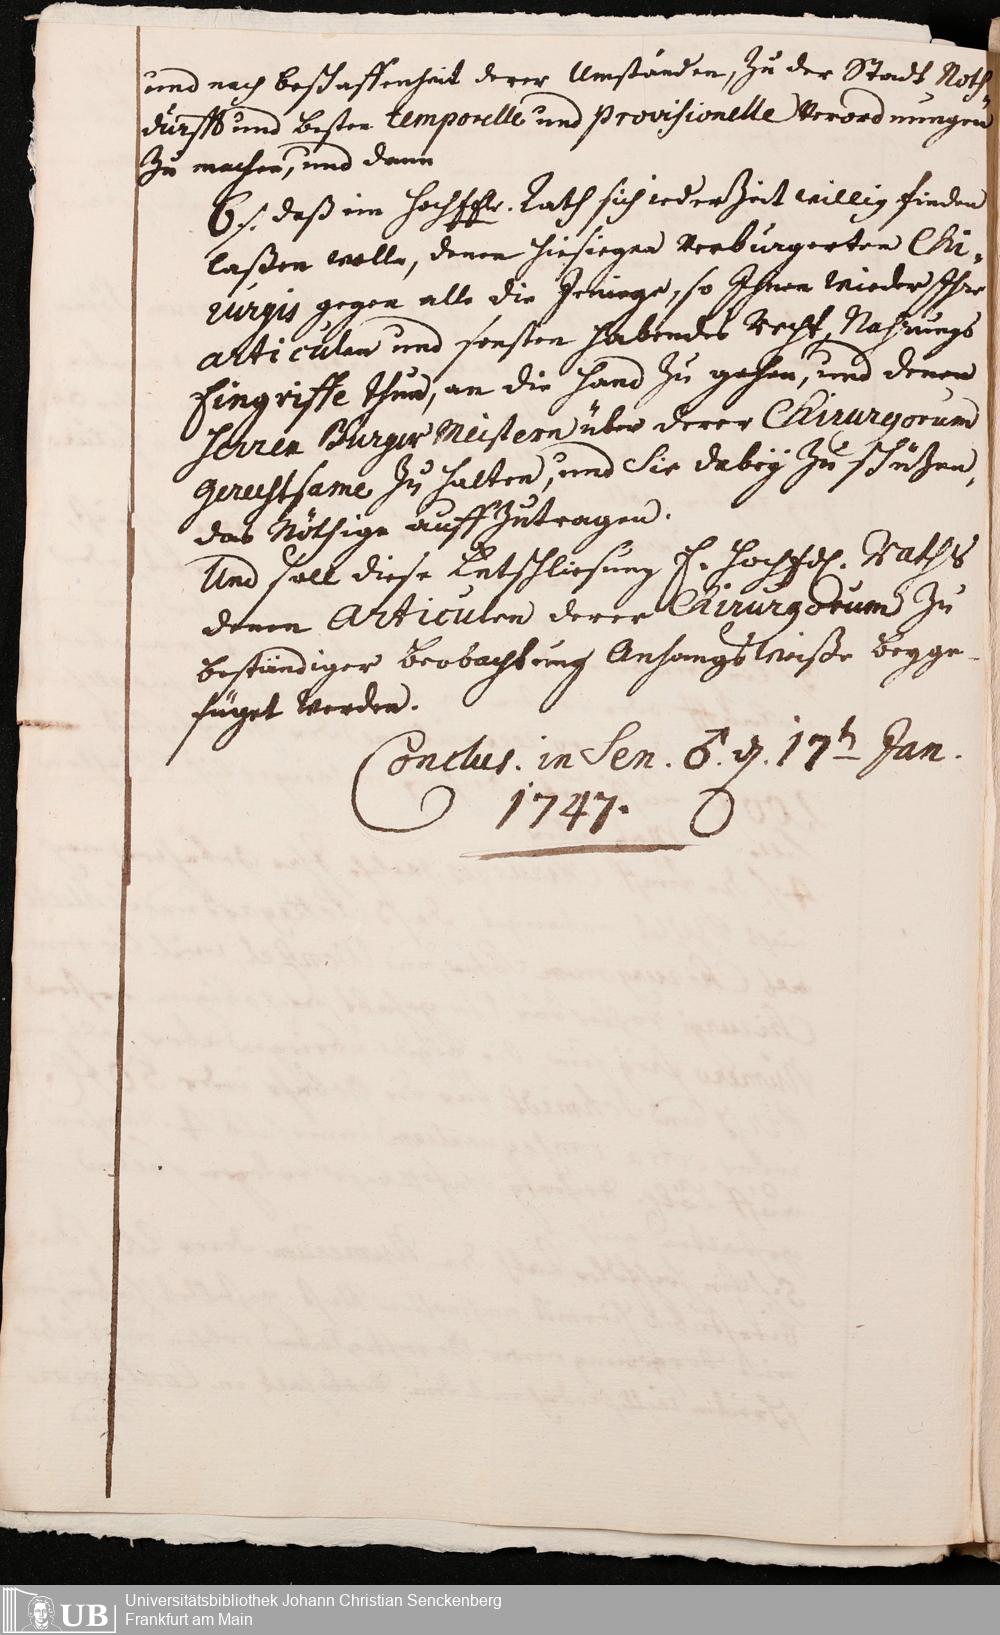 und nach beschaffenheit derer Umständen, Zu der Stadt Noth„
durfft und besten temporelle und Provisionelle Verordnungen
Zu machen, und dann
6.) daß ein Hoch Rath sich iederzeit willig finden
laßen wolle, denen hiesigen verbürgerten Chi„
rurgis gegen alle die Jenige, so Ihnen wieder Ihre
articulen und sonsten habendes Recht, Nahrungs
Eingriffe thun, an die Hand zu gehen, und denen
Herren Burger Meistern über derer Chirurgorum
Gerechtsame zu halten, und Sie dabey zu schützen,
das Nöthige auffzutragen.
Und soll diese Entschliesung E. Hoched. Raths
denen Articulen derer Chirurgorum zu
beständiger beobachtung Anhangsweiße beyge„
füget werden.
Conclus. in Sen. ♂. d. 17th Jan.
1747.
UB
Universitätsbibliothek Johann Christian Senckenberg
Frankfurt am Main